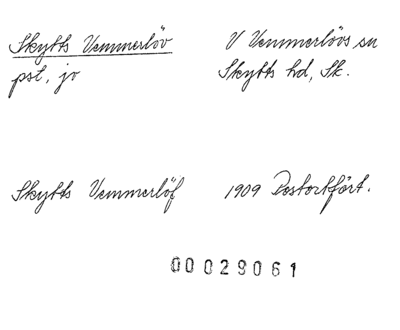 Skytts Vemmerlöv
V Vemmerlövs sn
pst, jv
Skytts hd, Sk.
Skytts Vemmerlöf
1909 Postortfört.
00029061